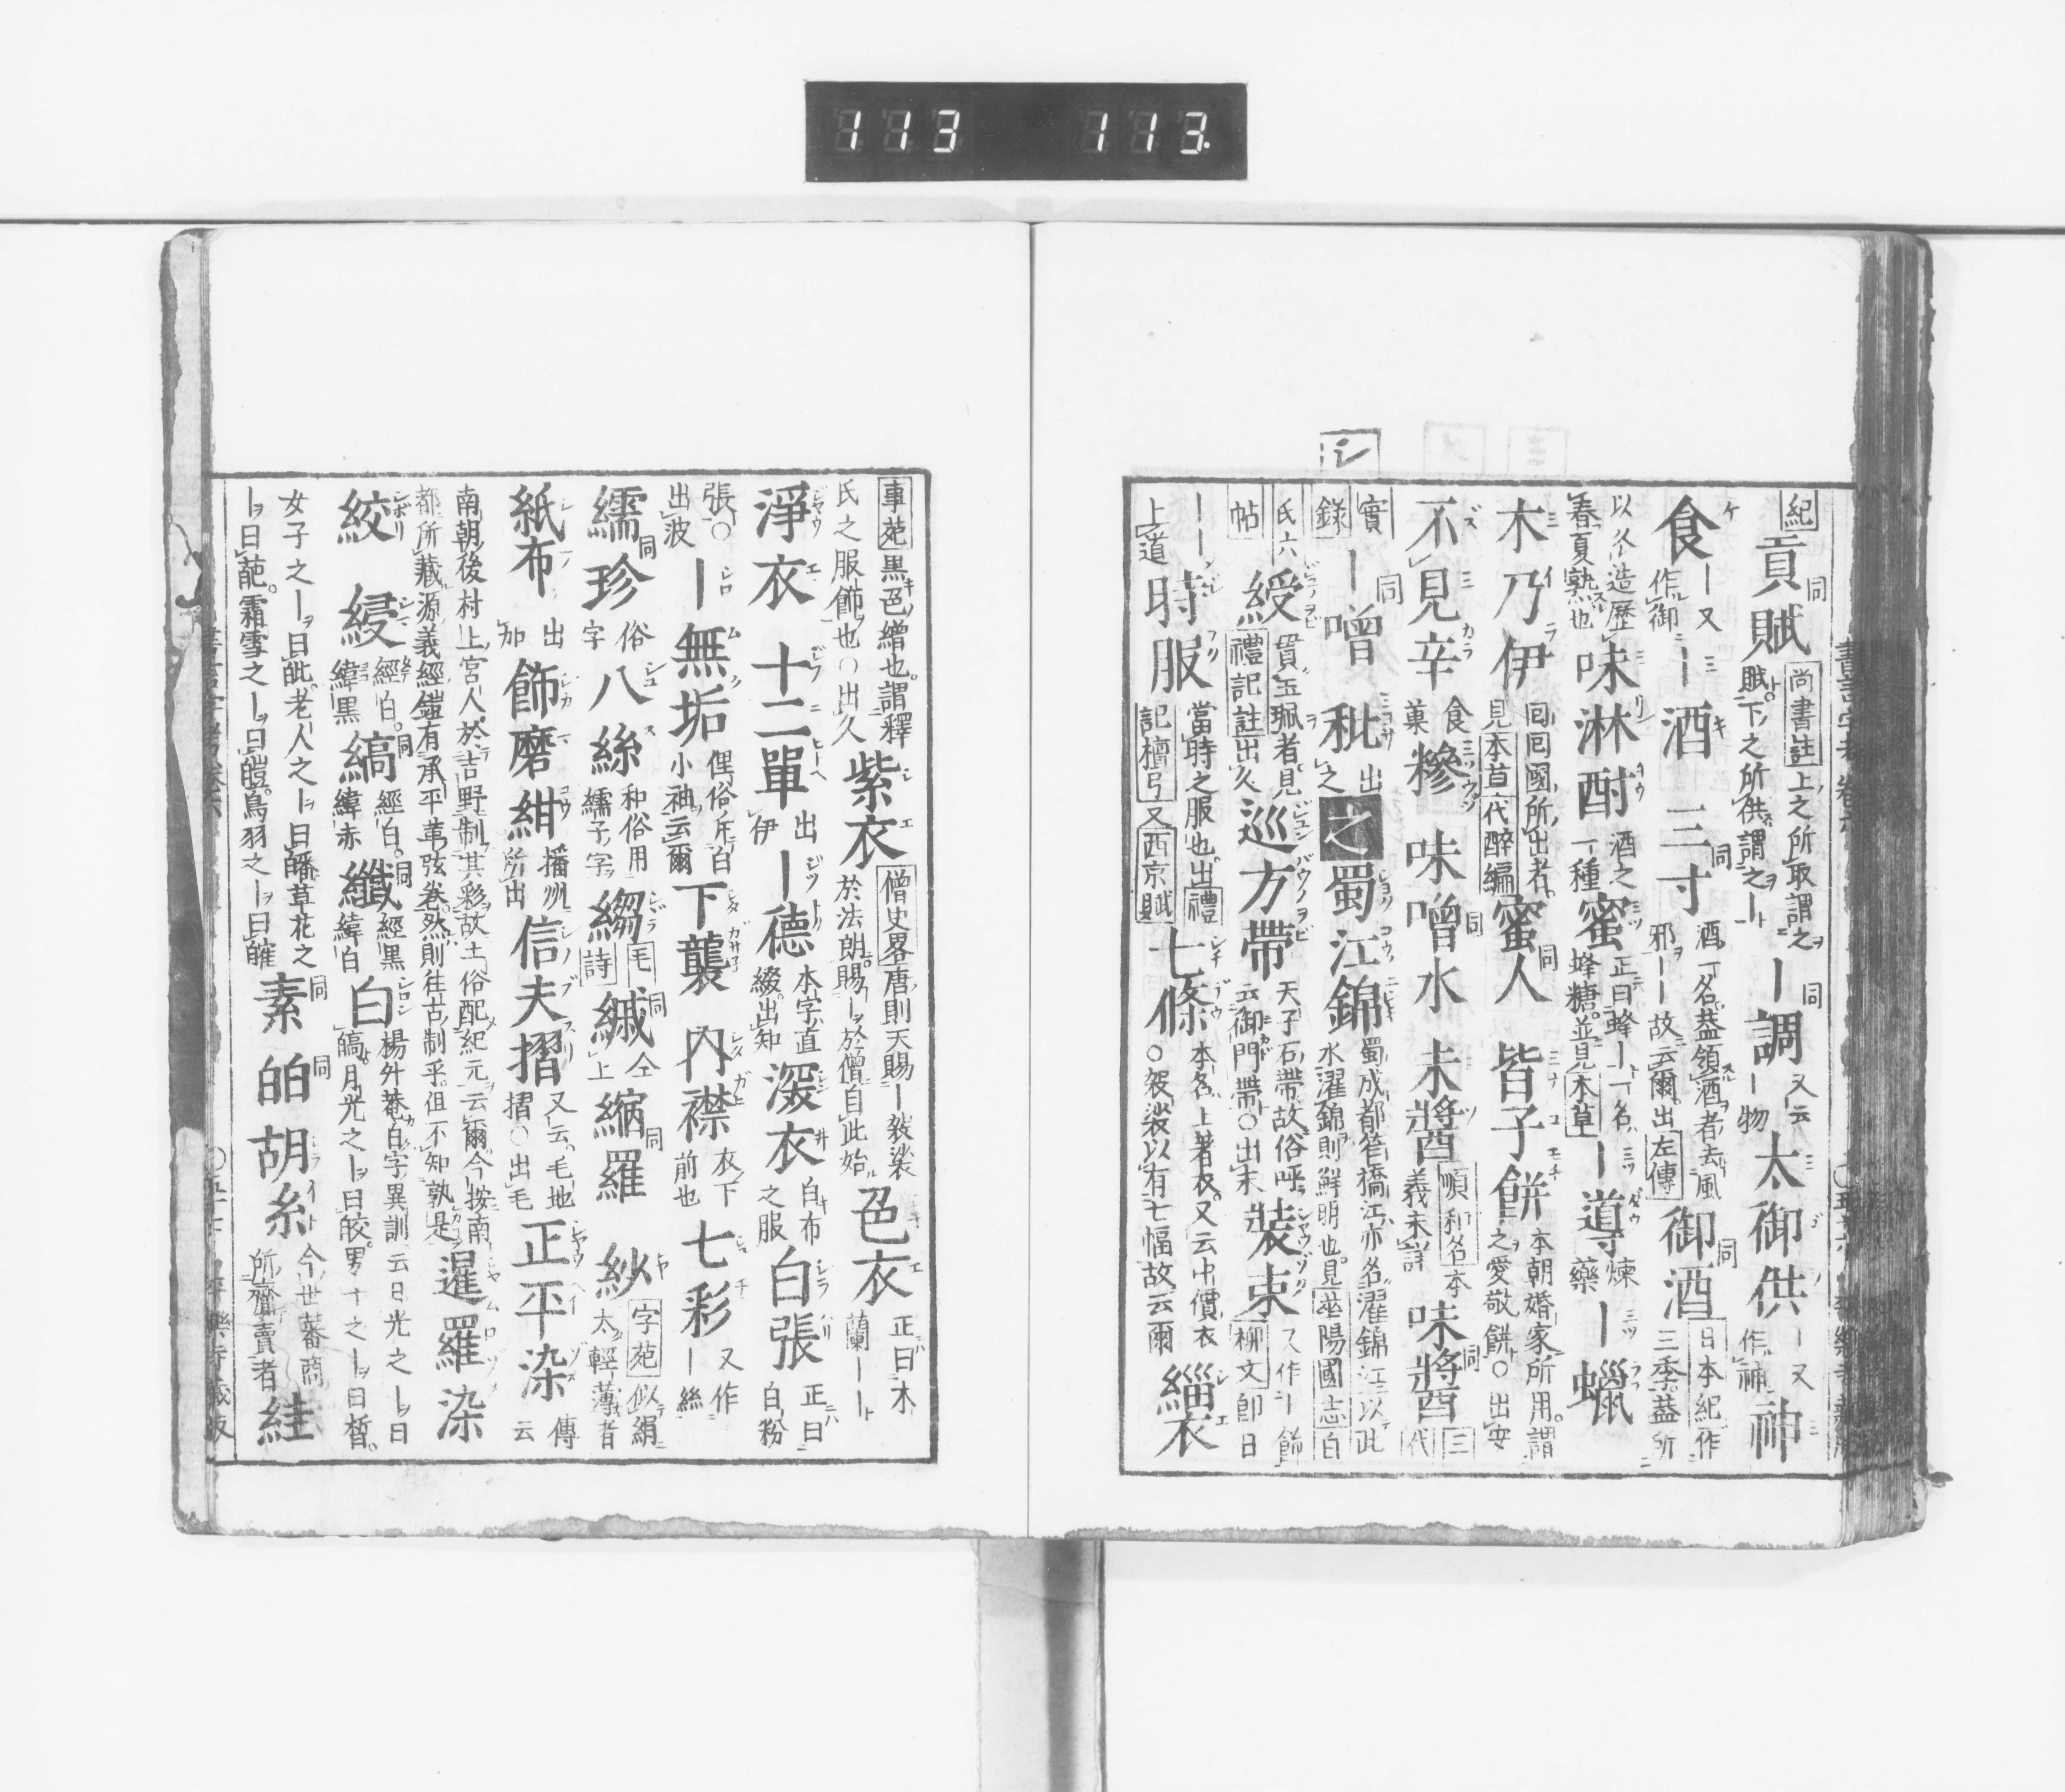 113 113.
シ
紀 貢賦 同 尚書註 上之所取謂之賦。下之所供謂之ー ー調 同 又云ー物 太御供 ー又作神 神
食 ー又作御 ー酒 三寸 同 酒一名。蓋領酒者去風邪ーー故云爾。出左傳 御酒 同 日本紀作三季。蓋所
以冬造歷春夏熟也 味淋酎 酒之一種 蜜 正曰蜂ー一名蜂糖。並見本草 ー導 煉藥 ー蠟
木乃伊 回回國所出者。見本草代醉編 蜜人 同 皆子餅 本朝婚家所用。謂之愛敬餅○出安
不見辛 食菓 糝 味噌水 同 未醬 順和名本義末詳 味醬 同 三代
實錄 ー噌 同 秕 出之 之 蜀江錦 蜀成都管橋江亦名濯錦江以此水濯錦則鮮明也。見華陽國志白
氏六帖 綬 貫玉珮者。見禮記註出久 巡方帶 天子石帶故俗呼云御門帶○出末 裝束 又作ー飾柳文卽日
ーー上道 時服 當時之服也。出禮記檀弓又西京賦 七條 本名上著衣。又云中價衣○袈裟以有七幅故云爾 緇衣
事苑黒色繒也。謂釋氏之服飾也○出久 紫衣 僧史畧唐則天賜ー袈裟於法朗賜ー於僧自此始 色衣 正曰木蘭ー
淨衣 十二單 出伊 ー德 本字直綴。出知 深衣 白布之服 白張 正曰白粉
張○出波 ー無垢 俚俗斥白小袖云爾 下襲 內襟 衣下前也 七彩 又作ー絲
繻珍 同 俗字 八絲 和俗用繻子字 縐 毛詩 緎 同 仝上 縮羅 同 紗 字苑似絹太輕薄者
紙布 出加 飾磨紺 播州所出 信夫摺 又云毛地摺○出毛 正平染 傳云
南朝後村上宮人於吉野制其彩故土俗配紀元云爾今按南都所藏源義經鎧有承平革弦卷然則往古制乎。但不知孰是 暹羅染
絞 綅 經白。緯黒 縞 同 經白。緯赤 纖 同 經黒緯白 白 楊外菴白字異訓云日光之ー曰皜。月光之ー曰皎。男子之ー曰皙。
女子之ー曰㿟。老人之ー曰皤草花之ー曰葩。霜雪之ー曰皚。鳥羽之ー曰皠 素 同 皛 同 胡糸 今世蕃商所齎賣者 絓